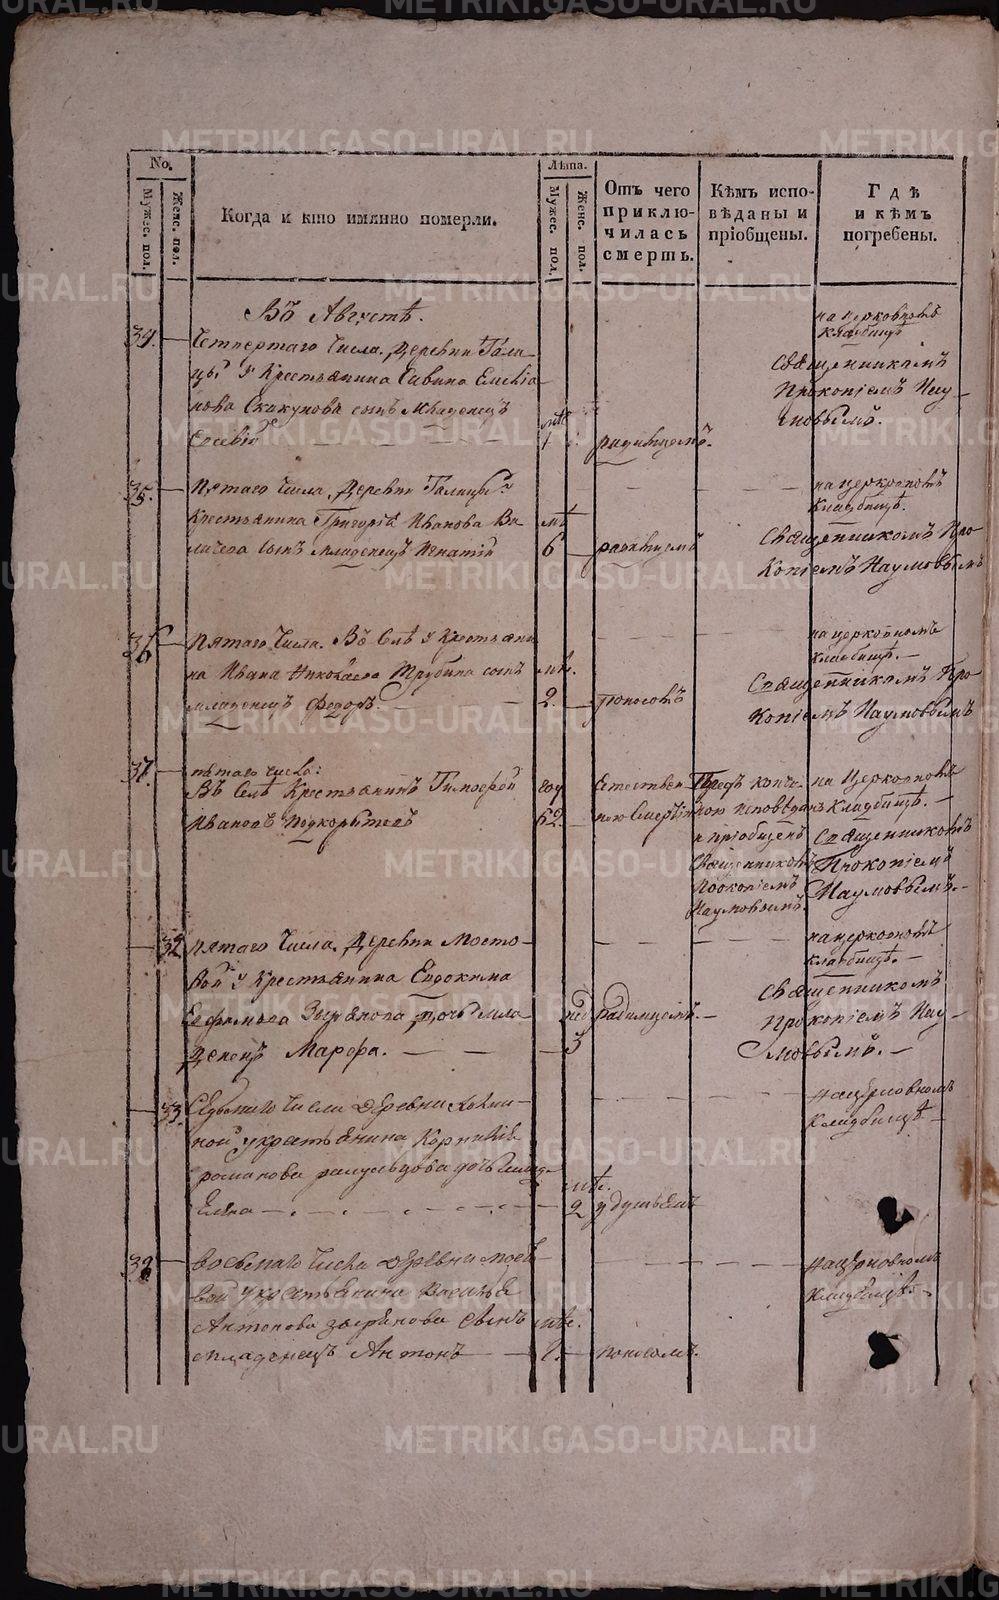 No.
Мужес. пол.
Женс. пол.
Когда и кто имянно померли.
Лѣта.
Мужес. пол.
Женс. пол.
Отъ чего приклю-
чилась смерть.
Кѣмъ испо-
вѣданы и
пріобщены.
Гдѣ
и кѣмъ
погребены.
Въ Августѣ.
34. Четвертаго числа. Деревни Гала-
у крестьянина Савина Емелiа-
нова Скакунова сынъ младенецъ
Евсевiй 1 родимцемъ.
на церковномъ
кладбищѣ
Священникомъ
Прокопiемъ Нау-
мовымъ.
35. Пятаго числа, Деревни
крестьянина Григорiя Иванова Ва-
сынъ младенецъ Игнатiй
мѣ. 6 родимцемъ
на церковномъ
кладбищѣ.
Священникомъ Про-
копiемъ Наумовымъ
36 Пятаго числа. Въ Селѣ у крестьяни-
на Ивана Николаева Трубина сынъ
младенецъ Федоръ.
мѣ. 2. поносомъ
на церковномъ
кладбищѣ.
Священникомъ Про-
копiемъ Наумовымъ
37. пятаго числа:
Въ Селѣ Крестьянинъ Тимофей
Ивановъ Подкорытовъ
год 62. Естествен-
ною смертiю
Предъ кончи-
ною исповѣданъ
и прiобщенъ
Священникомъ
Прокопiемъ
Наумовымъ.
на церковномъ
кладбищѣ.
Священникомъ
Прокопiемъ
Наумовымъ.
32 Пятаго числа. Деревни Мосто-
вой у крестьянина Евдокима
Ефремова Зырянова, дочь мла-
денецъ Марфа.
нед 3 родимцемъ.
на церковномъ
кладбищѣ.
Священникомъ
Прокопiемъ Нау-
мовымъ.
33. Седьмаго числа деревни
ной у крестьянина Корнилiя
романова дочь млад.
Елена мѣ. 2 удушьемъ
на церковномъ
кладбищѣ
38 восьмаго числа деревни мост-
вой у крестьянина Василья
Антонова зырянова сынъ
младенецъ Антонъ
поносомъ.
на церковномъ
кладбищѣ
METRIKI.GASO-URAL.RU